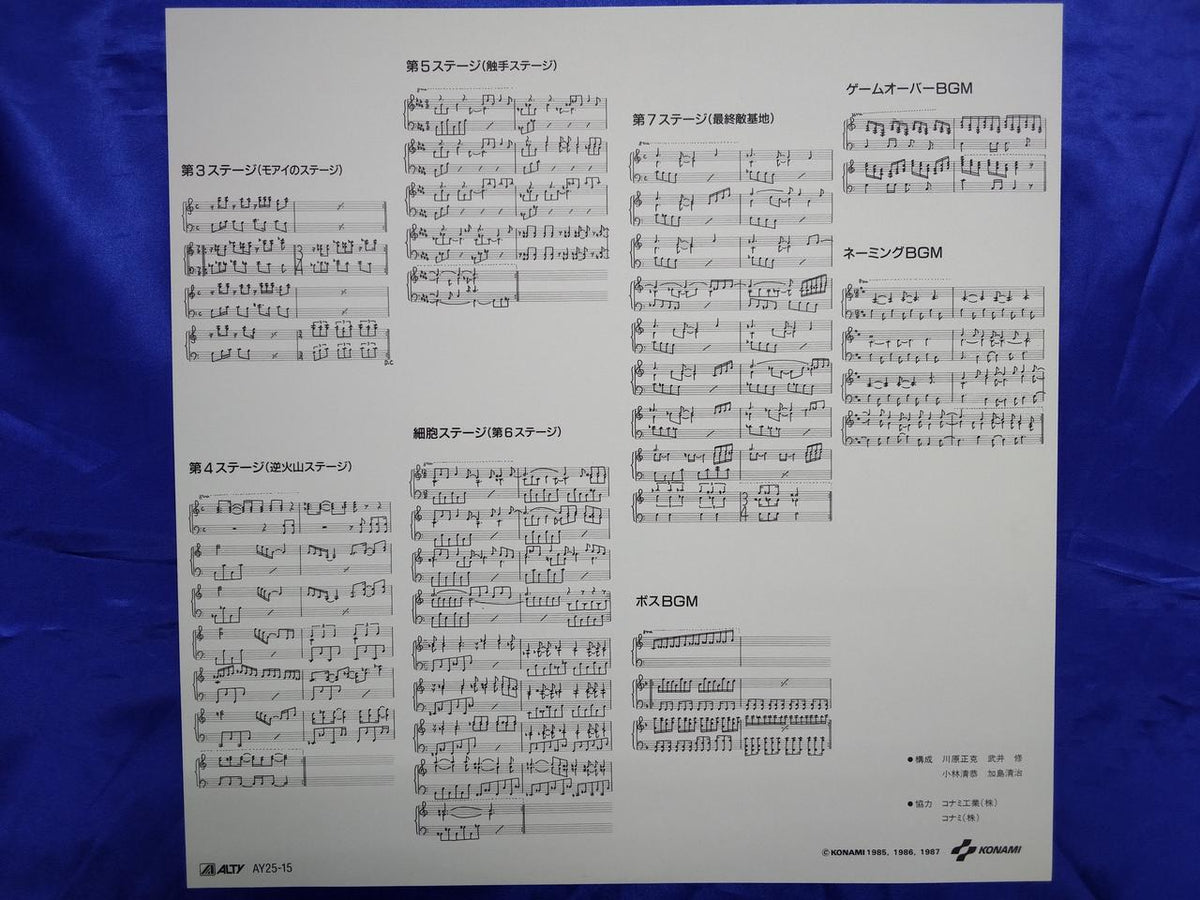 第3ステージ(モアイのステージ)
D.C
第4ステージ(逆火山ステージ)
第5ステージ(触手ステージ)
細胞ステージ(第6ステージ)
第7ステージ(最終敵基地)
ボスBGM
ゲームオーバーBGM
ネーミングBGM
●構成 川原正克 武井 修
小林清恭 加島清治
●協力 コナミ工業(株)
コナミ(株)
©KONAMI 1985, 1986, 1987 KONAMI
ALTY AY25-15